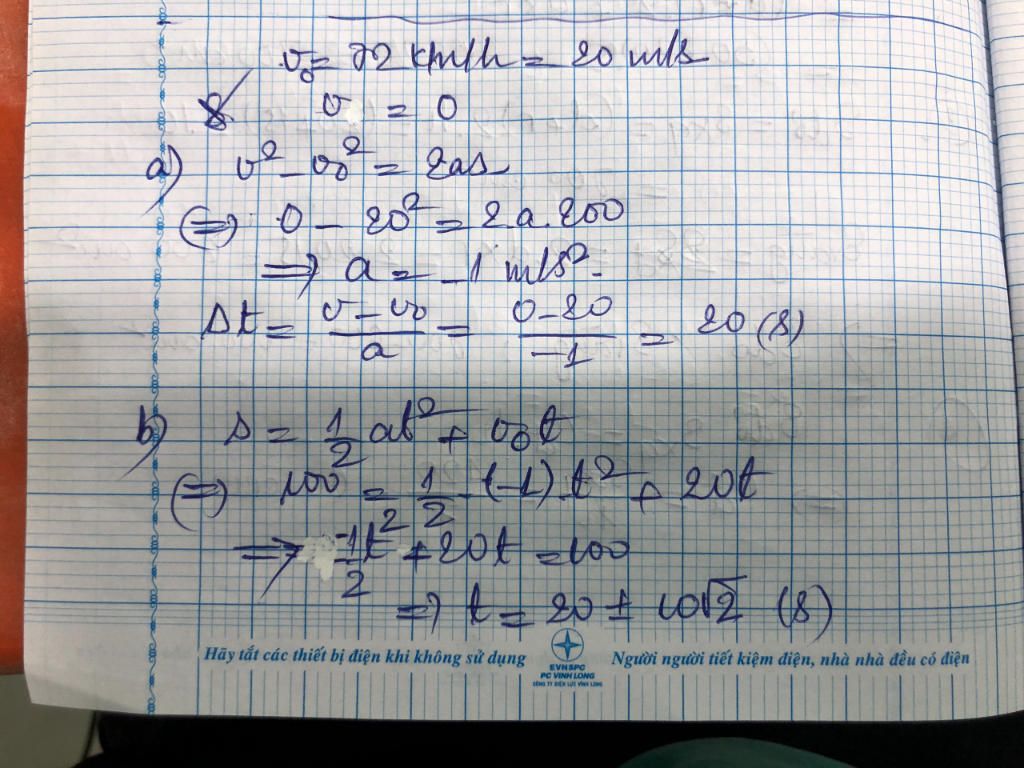 v₀ = 72 km/h = 20 m/s
8 v = 0
a) v² - v₀² = 2as
(⇒) 0 - 20² = 2.a.200
⇒ a = -1 m/s².
Δt = (v - v₀)/a = (0 - 20)/(-1) = 20 (s)
b) s = 1/2 at² + v₀t
(⇒) 100 = 1/2 . (-1) . t² + 20t
⇒ -1/2 t² + 20t = 100
⇒ t = 20 ± 10√2 (s)
Hãy tắt các thiết bị điện khi không sử dụng
EVNSPC
PC VINH LONG
CÔNG TY ĐIỆN LỰC VĨNH LONG
Người người tiết kiệm điện, nhà nhà đều có điện